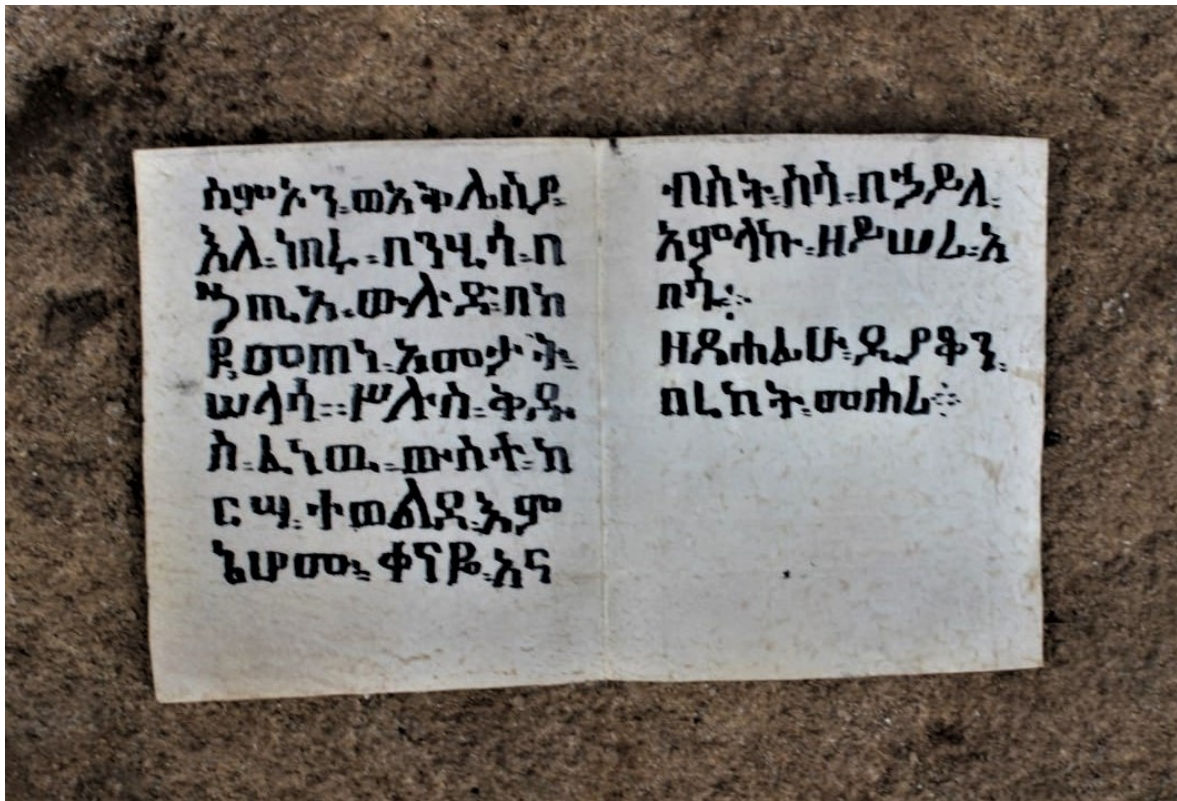 ስምኦን፡ወአቅሌስያ፡
እለ፡ነበሩ፡በንሂሳ፡በ
ኃጢአ፡ውሉድ፡በከ
ዩ፡መጠነ፡አመታት፡
ሠላሳ፡፡ሥሉስ፡ቅዱ
ስ፡ፈኒዉ፡ውስተ፡ከ
ርሣ፡ተወልደ፡እም
ኔሆሙ፡ቀናዬ፡አና
ብስት፡ስሳ፡በኃይለ፡
አምላኩ፡ዘይሠሪ፡አ
በሳ፡፡
ዘጸሐፊሁ፡ዲያቆን፡
በረከት፡መሐሪ፡፡